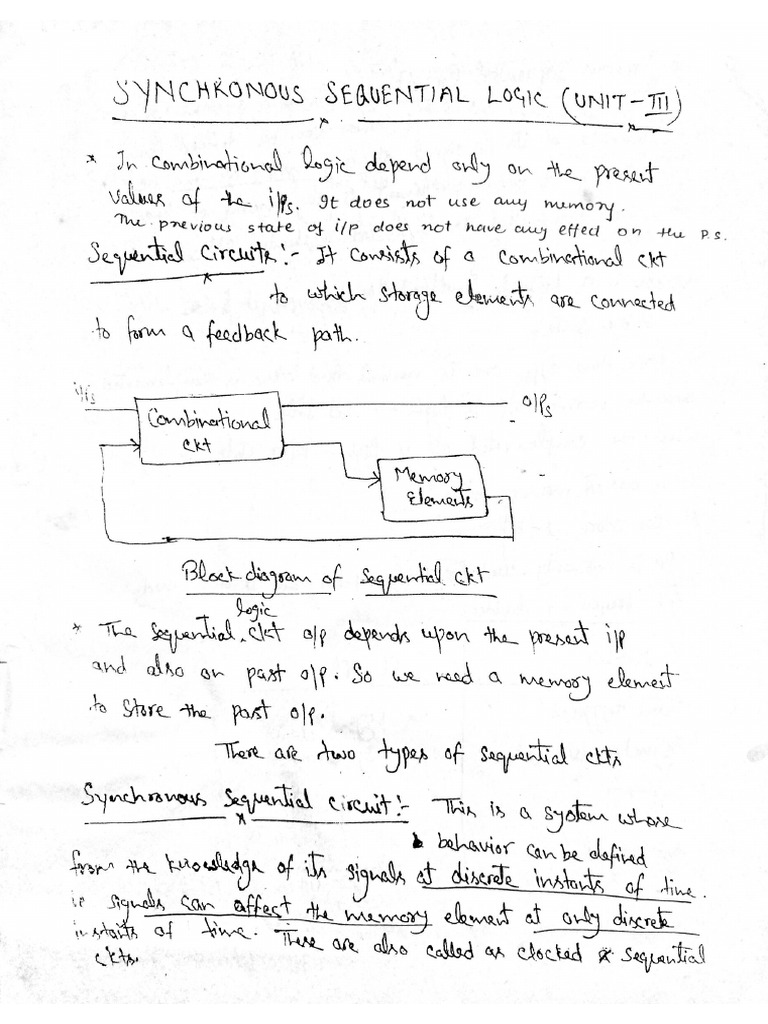 SYNCHRONOUS SEQUENTIAL LOGIC (UNIT-III)
* In combinational logic depend only on the present
values of the i/ps. It does not use any memory.
The previous state of i/p does not have any effect on the P.S.
Sequential Circuits:- It consists of a combinational ckt
to which storage elements are connected
to form a feedback path.
i/ps
O/Ps
Combinational
ckt
Memory
Elements
Block diagram of sequential ckt
logic
* The sequential ckt o/p depends upon the present i/p
and also on past o/p. So we need a memory element
to store the past o/p.
There are two types of sequential ckts
Synchronous sequential circuit:- This is a system whose
behavior can be defined
from the knowledge of its signals at discrete instants of time.
ie signals can affect the memory element at only discrete
instants of time. These are also called as clocked sequential
ckts.